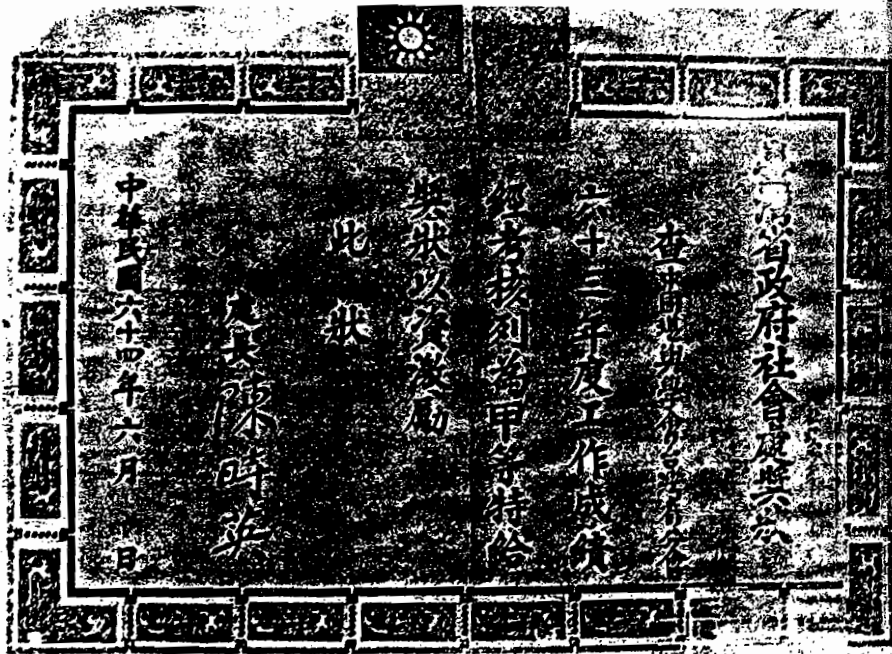 灣省政府社會處獎狀
查中
六十三年度工作成績
經考核列為甲等特給
獎狀以資激勵
此狀
處長陳時英
中華民國六十四年六月 日